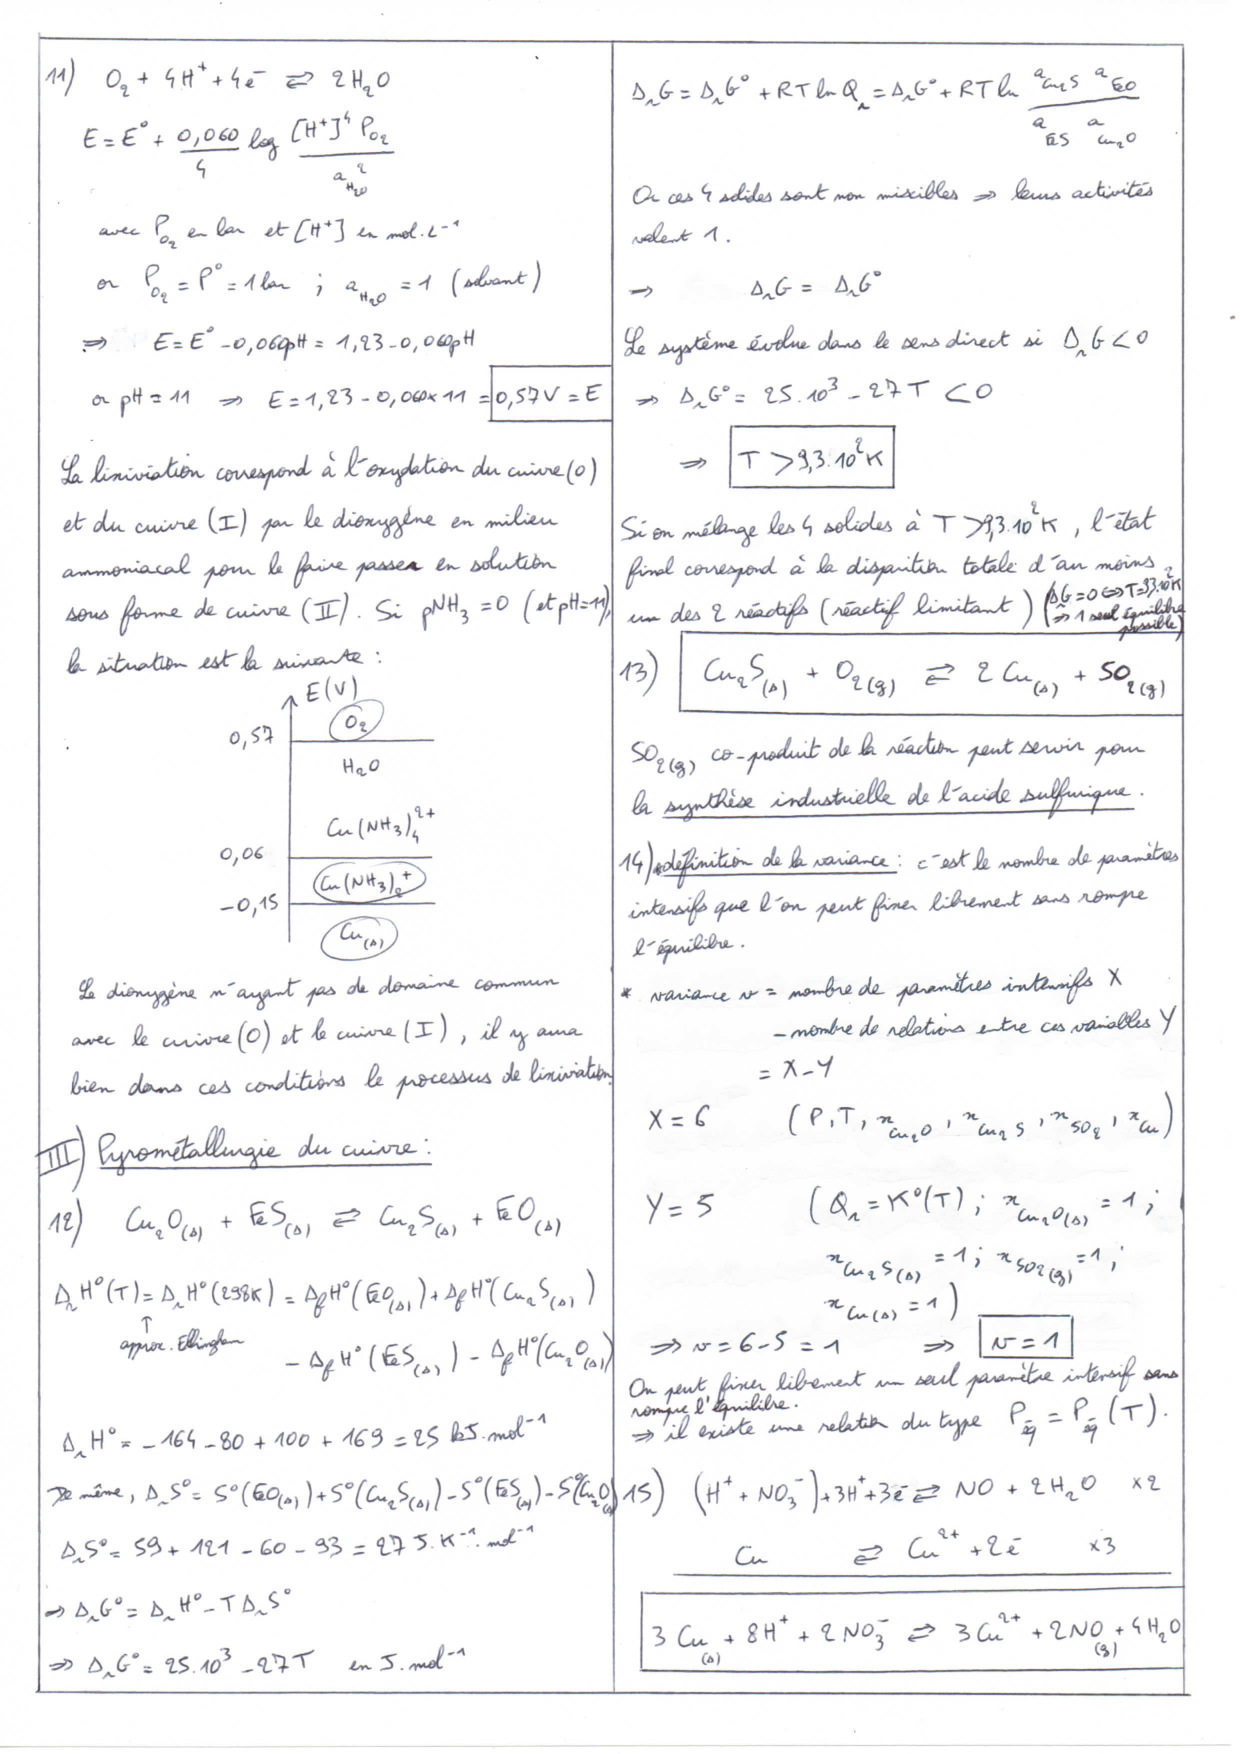 11) O₂ + 4H⁺ + 4e⁻ ⇌ 2H₂O
E = E° + 0,060/4 log [H⁺]⁴ P_O₂ / a_H₂O²
avec P_O₂ en bar et [H⁺] en mol.L⁻¹
or P_O₂ = P° = 1 bar ; a_H₂O = 1 (solvant)
⇒ E = E° - 0,060pH = 1,23 - 0,060pH
or pH = 11 ⇒ E = 1,23 - 0,060×11 = 0,57V = E
La lixiviation correspond à l'oxydation du cuivre (0)
et du cuivre (I) par le dioxygène en milieu
ammoniacal pour le faire passer en solution
sous forme de cuivre (II). Si pNH₃ = 0 (et pH=11),
la situation est la suivante :
E(V)
O₂
0,57
H₂O
Cu(NH₃)₄²⁺
0,06
Cu(NH₃)₂⁺
-0,15
Cu(s)
Le dioxygène n'ayant pas de domaine commun
avec le cuivre (0) et le cuivre (I), il y aura
bien dans ces conditions le processus de lixiviation.
III) Pyrométallurgie du cuivre :
12) Cu₂O(s) + FeS(s) ⇌ Cu₂S(s) + FeO(s)
ΔrH°(T) = ΔrH°(298K) = ΔfH°(FeO(s)) + ΔfH°(Cu₂S(s))
↑
approx. Ellingham
- ΔfH°(FeS(s)) - ΔfH°(Cu₂O(s))
ΔrH° = -164 - 80 + 100 + 169 = 25 kJ.mol⁻¹
De même, ΔrS° = S°(FeO(s)) + S°(Cu₂S(s)) - S°(FeS(s)) - S°(Cu₂O(s))
ΔrS° = 59 + 121 - 60 - 93 = 27 J.K⁻¹.mol⁻¹
⇒ ΔrG° = ΔrH° - TΔrS°
⇒ ΔrG° = 25.10³ - 27T en J.mol⁻¹
ΔrG = ΔrG° + RT ln Qr = ΔrG° + RT ln a_Cu₂S a_FeO / a_FeS a_Cu₂O
Or ces 4 solides sont non miscibles ⇒ leurs activités
valent 1.
⇒ ΔrG = ΔrG°
Le système évolue dans le sens direct si ΔrG < 0
⇒ ΔrG° = 25.10³ - 27T < 0
⇒ T > 9,3.10²K
Si on mélange les 4 solides à T > 9,3.10²K, l'état
final correspond à la disparition totale d'au moins
un des 2 réactifs (réactif limitant) (ΔrG=0 ⇔ T=9,3.10²K
⇒ 1 seul équilibre
possible)
13) Cu₂S(s) + O₂(g) ⇌ 2Cu(s) + SO₂(g)
SO₂(g) co-produit de la réaction peut servir pour
la synthèse industrielle de l'acide sulfurique.
14) * définition de la variance : c'est le nombre de paramètres
intensifs que l'on peut fixer librement sans rompre
l'équilibre.
* variance v = nombre de paramètres intensifs X
- nombre de relations entre ces variables Y
= X - Y
X = 6 (P, T, x_Cu₂O, x_Cu₂S, x_SO₂, x_Cu)
Y = 5 (Qr = K°(T) ; x_Cu₂O(s) = 1 ;
x_Cu₂S(s) = 1 ; x_SO₂(g) = 1 ;
x_Cu(s) = 1)
⇒ v = 6 - 5 = 1 ⇒ v = 1
On peut fixer librement un seul paramètre intensif sans
rompre l'équilibre.
⇒ il existe une relation du type P_éq = P_éq(T).
15) (H⁺ + NO₃⁻) + 3H⁺ + 3e⁻ ⇌ NO + 2H₂O ×2
Cu ⇌ Cu²⁺ + 2e⁻ ×3
3Cu(s) + 8H⁺ + 2NO₃⁻ ⇌ 3Cu²⁺ + 2NO(g) + 4H₂O